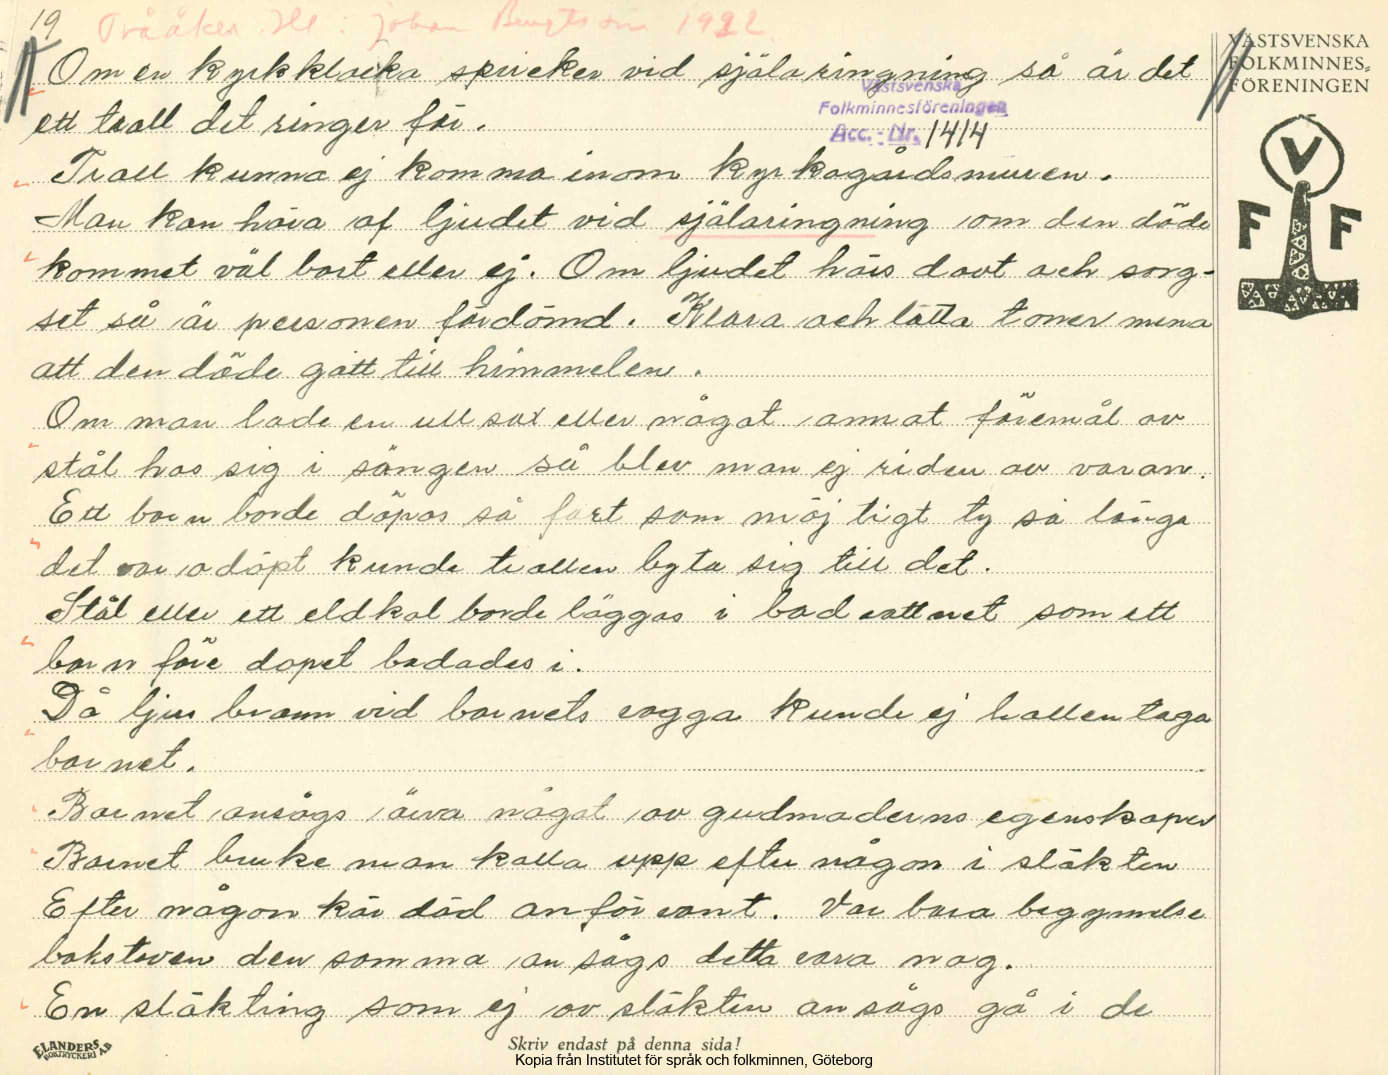 19
Tvååker. Hl: Johan Bengtsson 1922.
VÄSTSVENSKA
FOLKMINNES-
FÖRENINGEN
Om en kyrkklocka spricker vid själaringning så är det
Västsvenska
Folkminnesföreningen
Acc.-Nr. 1414
ett troll det ringer för.
Troll kunna ej komma inom kyrkogårdsmuren.
Man kan höra af ljudet vid själaringning om den döde
kommet väl bort eller ej. Om ljudet hörs dovt och sorg-
set så är personen fördömd. Klara och lätta toner mena
att den döde gått till himmelen.
Om man lade en ull sax eller något annat föremål av
stål hos sig i sängen så blev man ej riden av varan.
Ett barn borde döpas så fort som möjligt ty så länge
det var odöpt kunde trollen byta sig till det.
Stål eller ett eldkol borde läggas i badvattnet som ett
barn före dopet badades i.
Då ljus brann vid barnets vagga kunde ej trollen taga
barnet.
Barnet ansågs ärva något av gudmoderns egenskaper
Barnet bruke man kalla upp efter någon i släkten
Efter någon kär död anförvant. Var bara begynnelse
bokstaven den somma ansågs detta vara nog.
En släkting som ej av släkten ansågs gå i de
V
F F
ELANDERS
BOKTRYCKERI A.B
Skriv endast på denna sida!
Kopia från Institutet för språk och folkminnen, Göteborg